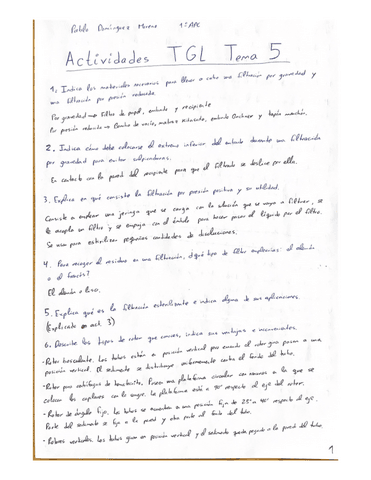 Pablo Domínguez Moreno 1º APC
Actividades TGL Tema 5
1. Indica los materiales necesarios para llevar a cabo una filtración por gravedad y
una filtración por presión reducida.
Por gravedad → Filtro de papel, embudo y recipiente
Por presión reducida → Bomba de vacío, matraz kitasato, embudo Büchner y tapón
2. Indica cómo debe colocarse el extremo inferior del embudo durante una filtración
por gravedad para evitar salpicaduras.
En contacto con la pared del recipiente para que el filtrado se deslice por ella.
3. Explica en qué consiste la filtración por presión positiva y su utilidad.
Consiste en emplear una jeringa que se carga con la solución que se vaya a filtrar, se
le acopla un filtro y se empuja con el émbolo para hacer pasar el líquido por el filtro.
Se usa para esterilizar pequeñas cantidades de disoluciones.
4. Para recoger el residuo en una filtración, ¿qué tipo de filtro emplearías: el alemán
o el francés?
El alemán o liso.
5. Explica qué es la filtración esterilizante e indica alguna de sus aplicaciones.
(Explicado en act. 3)
6. Describe los tipos de rotor que conoces, indica sus ventajas e inconvenientes.
- Rotor basculante. Los tubos están en posición vertical pero cuando el rotor gira pasan a una
posición vertical. El sedimento se distribuye uniformemente contra el fondo del tubo.
- Rotor para centrífugas de hematocrito. Posee una plataforma circular con ranuras a la que se
colocan los capilares con la sangre. La plataforma está a 90° respecto al eje del rotor.
- Rotor de ángulo fijo. Los tubos se someten a una posición fija de 25° a 40° respecto al eje.
Parte del sedimento se fija a la pared y otra parte al fondo del tubo.
- Rotores verticales. Los tubos giran en posición vertical y el sedimento queda pegado a la pared del tubo.
1